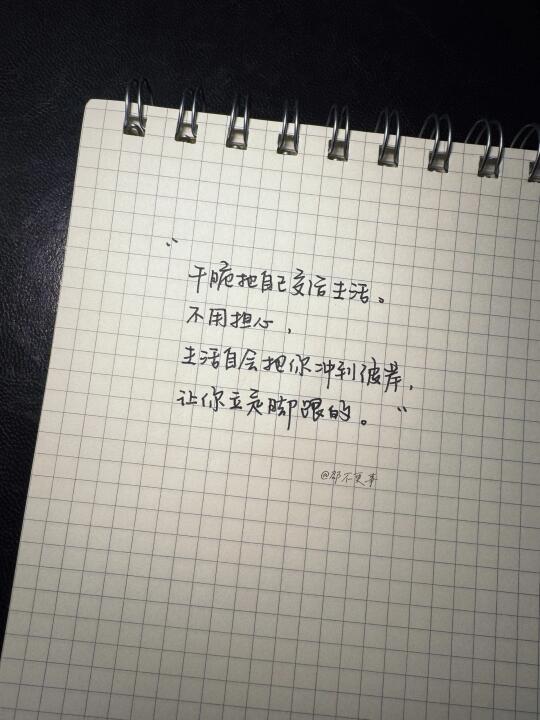 “
干脆把自己交给生活。
不用担心，
生活自会把你冲到彼岸，
让你立定脚跟的。”